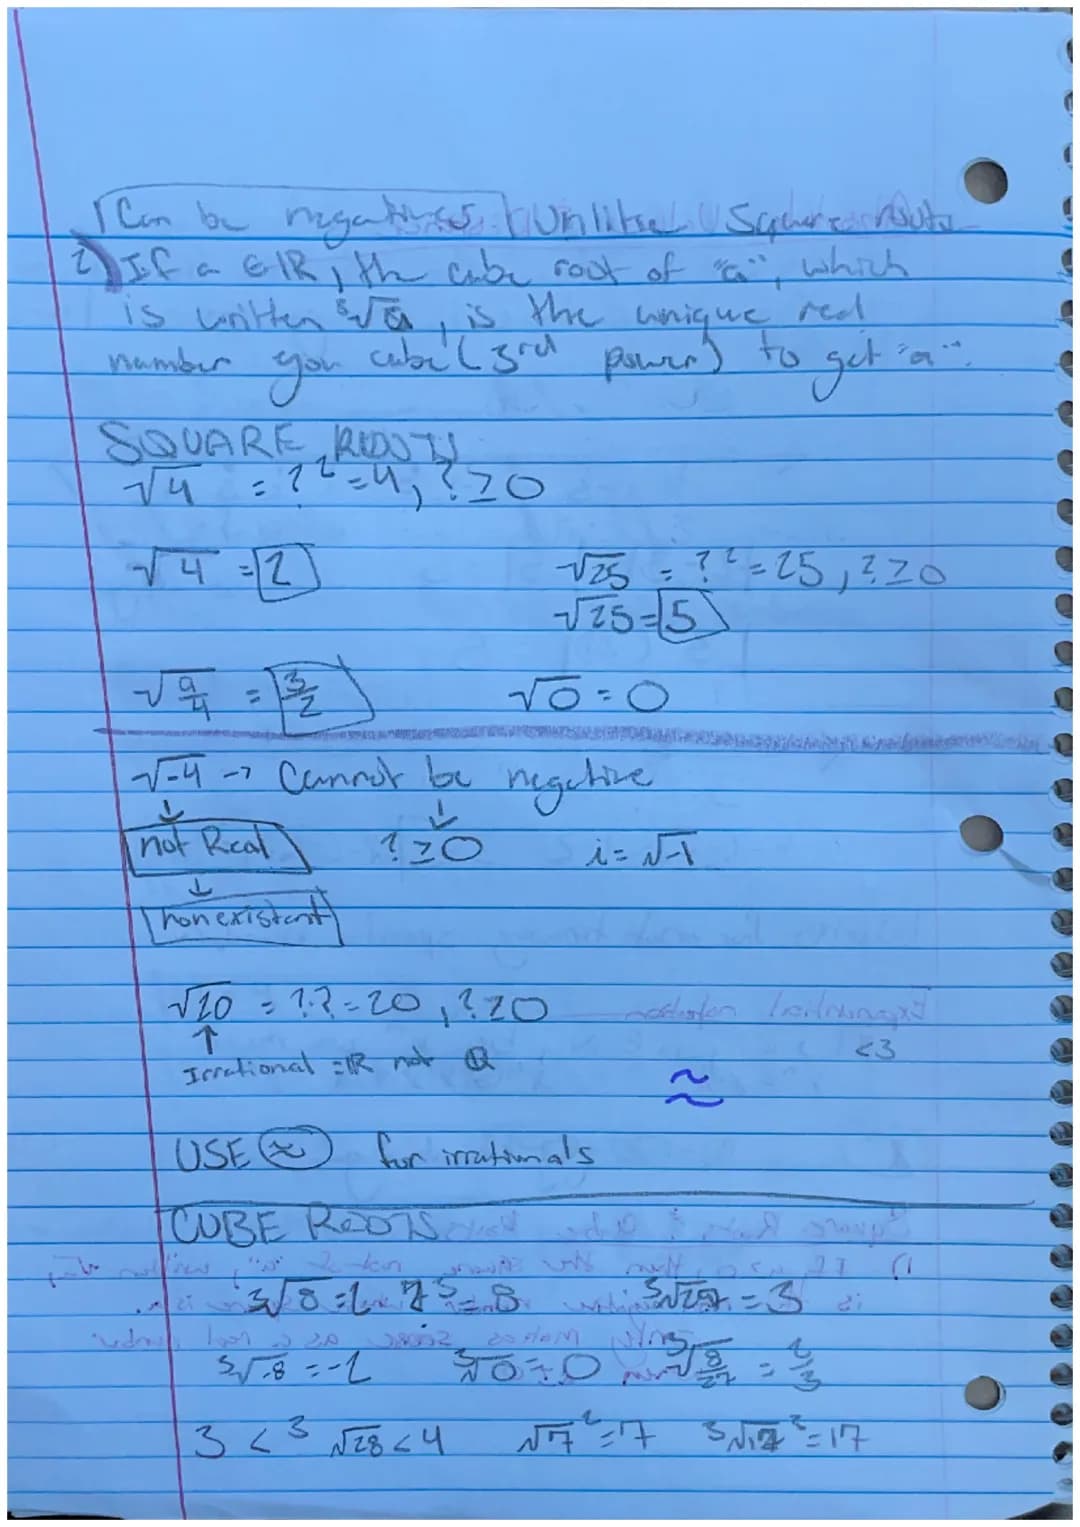 Can be negatives Unlike Square roots
2) If a ∈ ℝ, the cube root of "a", which
is written ³√a, is the unique real
number you cube (3rd power) to get "a".
SQUARE ROOTS
√4 = ?² = 4, ? ≥ 0
√4 = 2 √25 = ?² = 25, ? ≥ 0
√25 = 5
√9/4 = 3/2 √0 = 0
√-4 → Cannot be negative
↓ ↓
not Real ? ≥ 0 i = √-1
↓
nonexistant
√20 = ?·? = 20, ? ≥ 0
↑ <3
Irrational = ℝ not ℚ
≈
USE ≈ for irrationals
CUBE ROOTS
³√8 = 2 ?³ = 8 ³√27 = 3
³√-8 = -2 ³√0 = 0 ³√8/27 = 2/3
3 < ³√28 < 4 √7² = 7 ³√17³ = 17